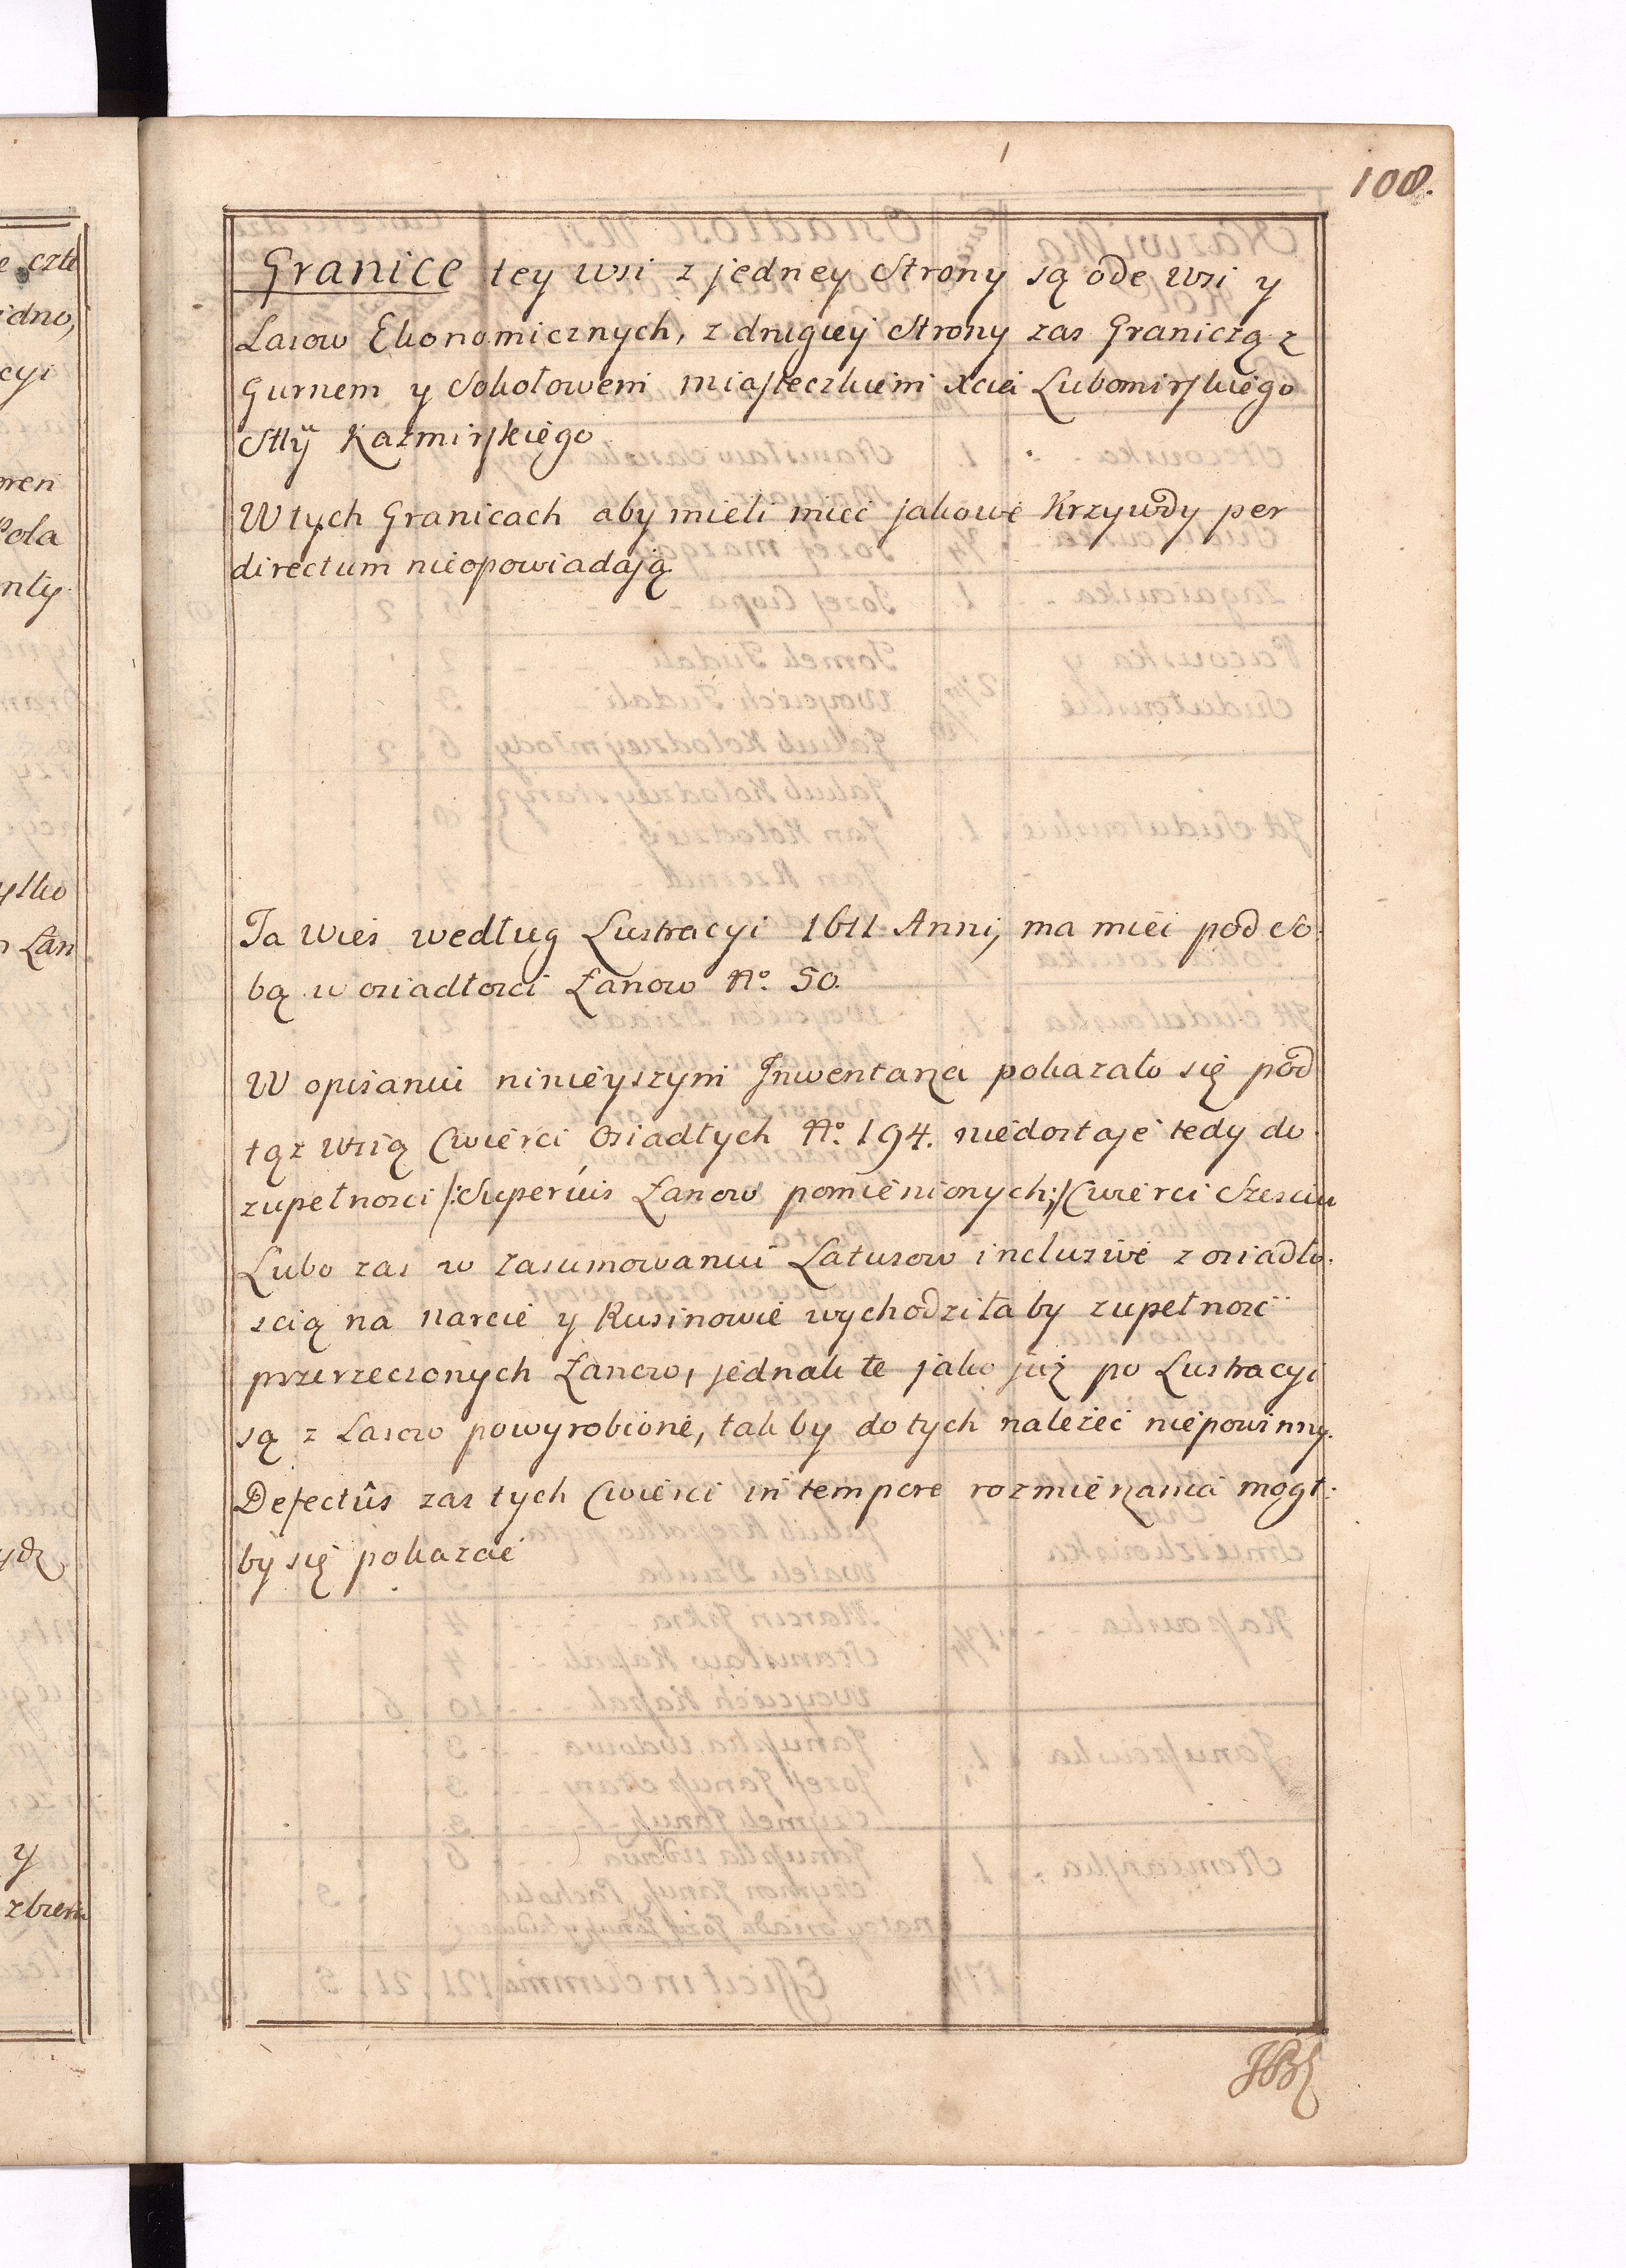 108.
Granice tey wsi z jedney Strony są ode wsi y
Lasow Ekonomicznych, z drugiey Strony zas Graniczą z
Gurnem y Sokołowem miasteczkiem Xcia Lubomirskiego
Stty Kazmirskiego
W tych Granicach aby mieli miec jakowe Krzywdy per
directum nieopowiadają
Ta wies według Lustracyi 1611 Anni, ma miec pod So:
bą w osiadłosci Łanow No. 50.
W opisaniu ninieyszym Inwentarza pokazało się pod
tąz wsią Cwierci Osiadłych No. 194. niedostaje tedy do
zupełnosci /:Superius Łanow pomienionych:/ Cwierci Szesciu
Lubo zas w zasumowaniu Latusow inclusive z osiadło:
scią na Narcie y Rusinowie wychodziłaby zupełnosc
przerzeczonych Łanow, jednak te jako już po Lustracyi
są z Lasow powyrobione, tak by do tych należec niepowinny.
Defectûs zas tych Cwierci in tempore rozmierzania mogł:
by się pokazac